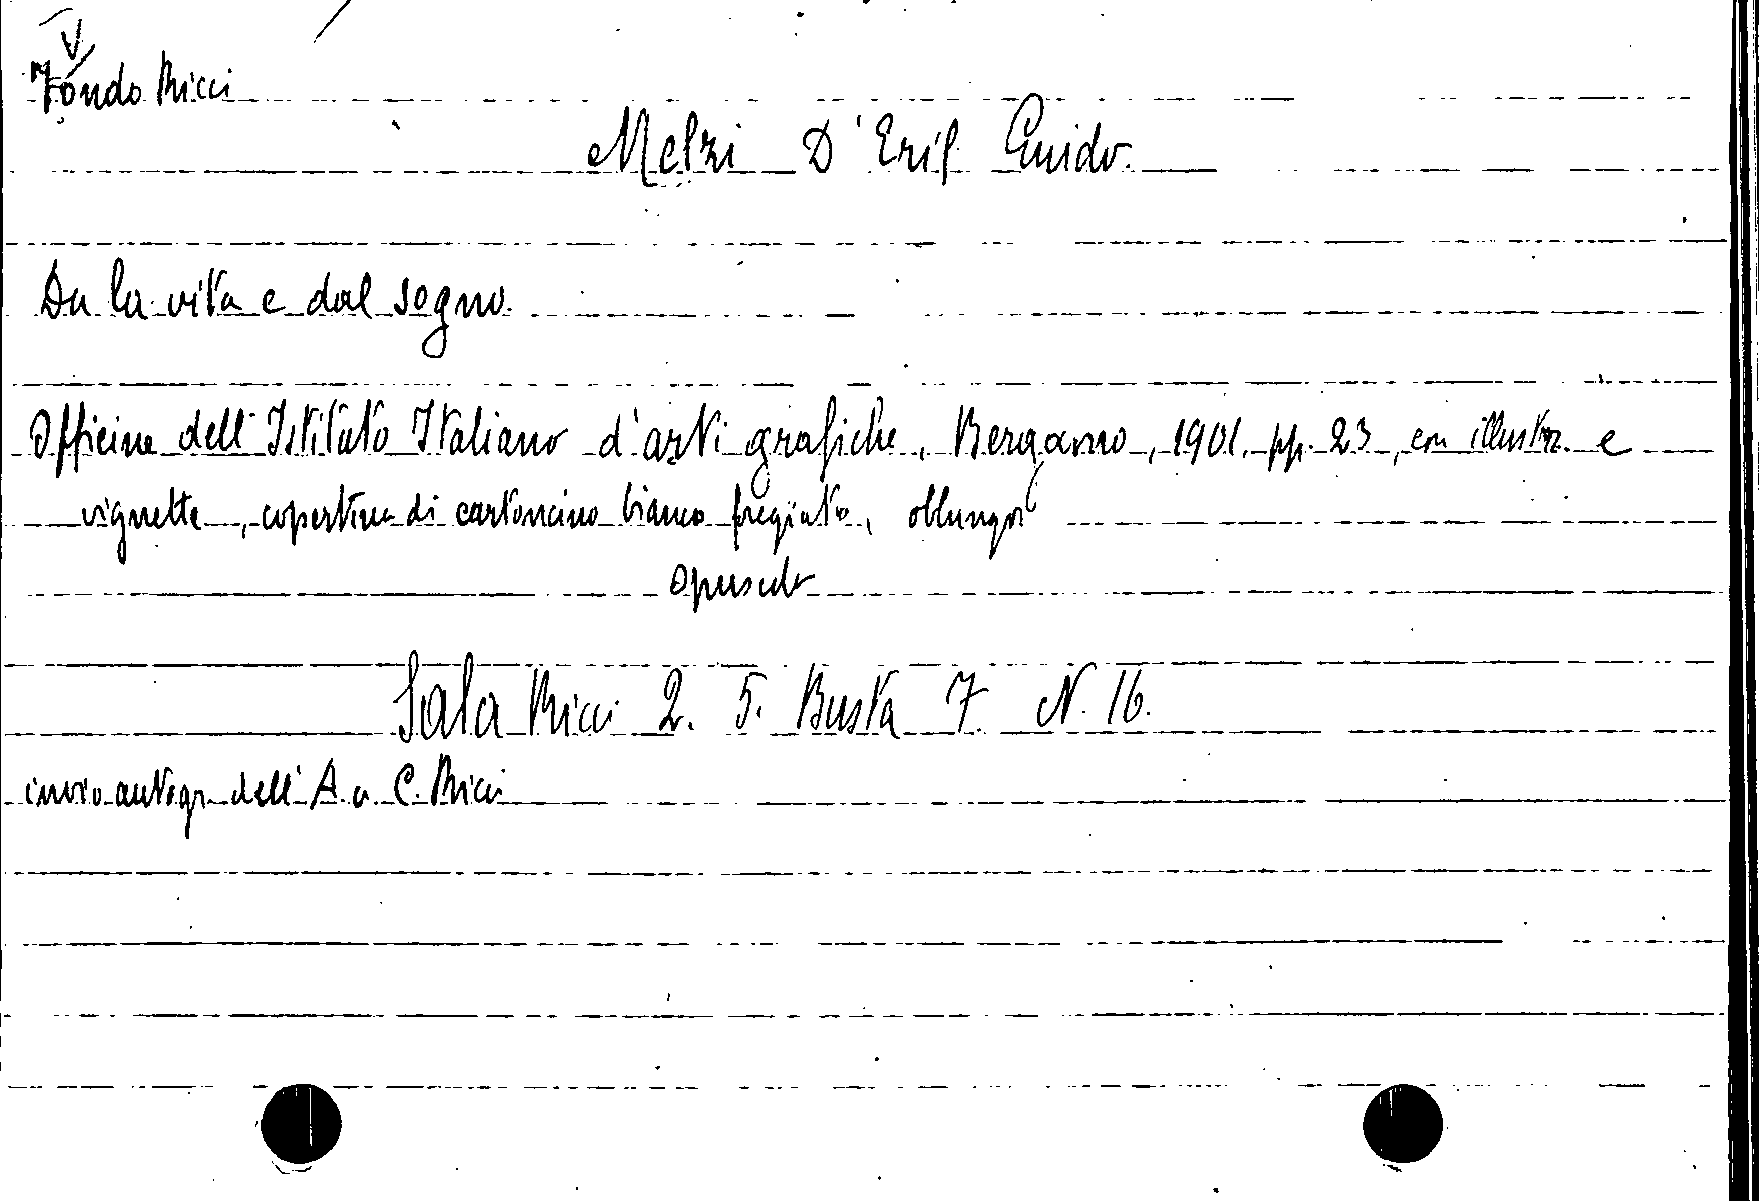 V
Fondo Ricci
Melzi D'Eril Guido.
Da la vita e dal sogno.
Officine dell'Istituto Italiano d'arti grafiche, Bergamo, 1901. pp. 23, con illustr. e
vignette, copertina di cartoncino bianco fregiato, oblungo
opuscolo
Sala Ricci 2. 5. Busta 7. N. 16.
invio autogr. dell'A. a C. Ricci